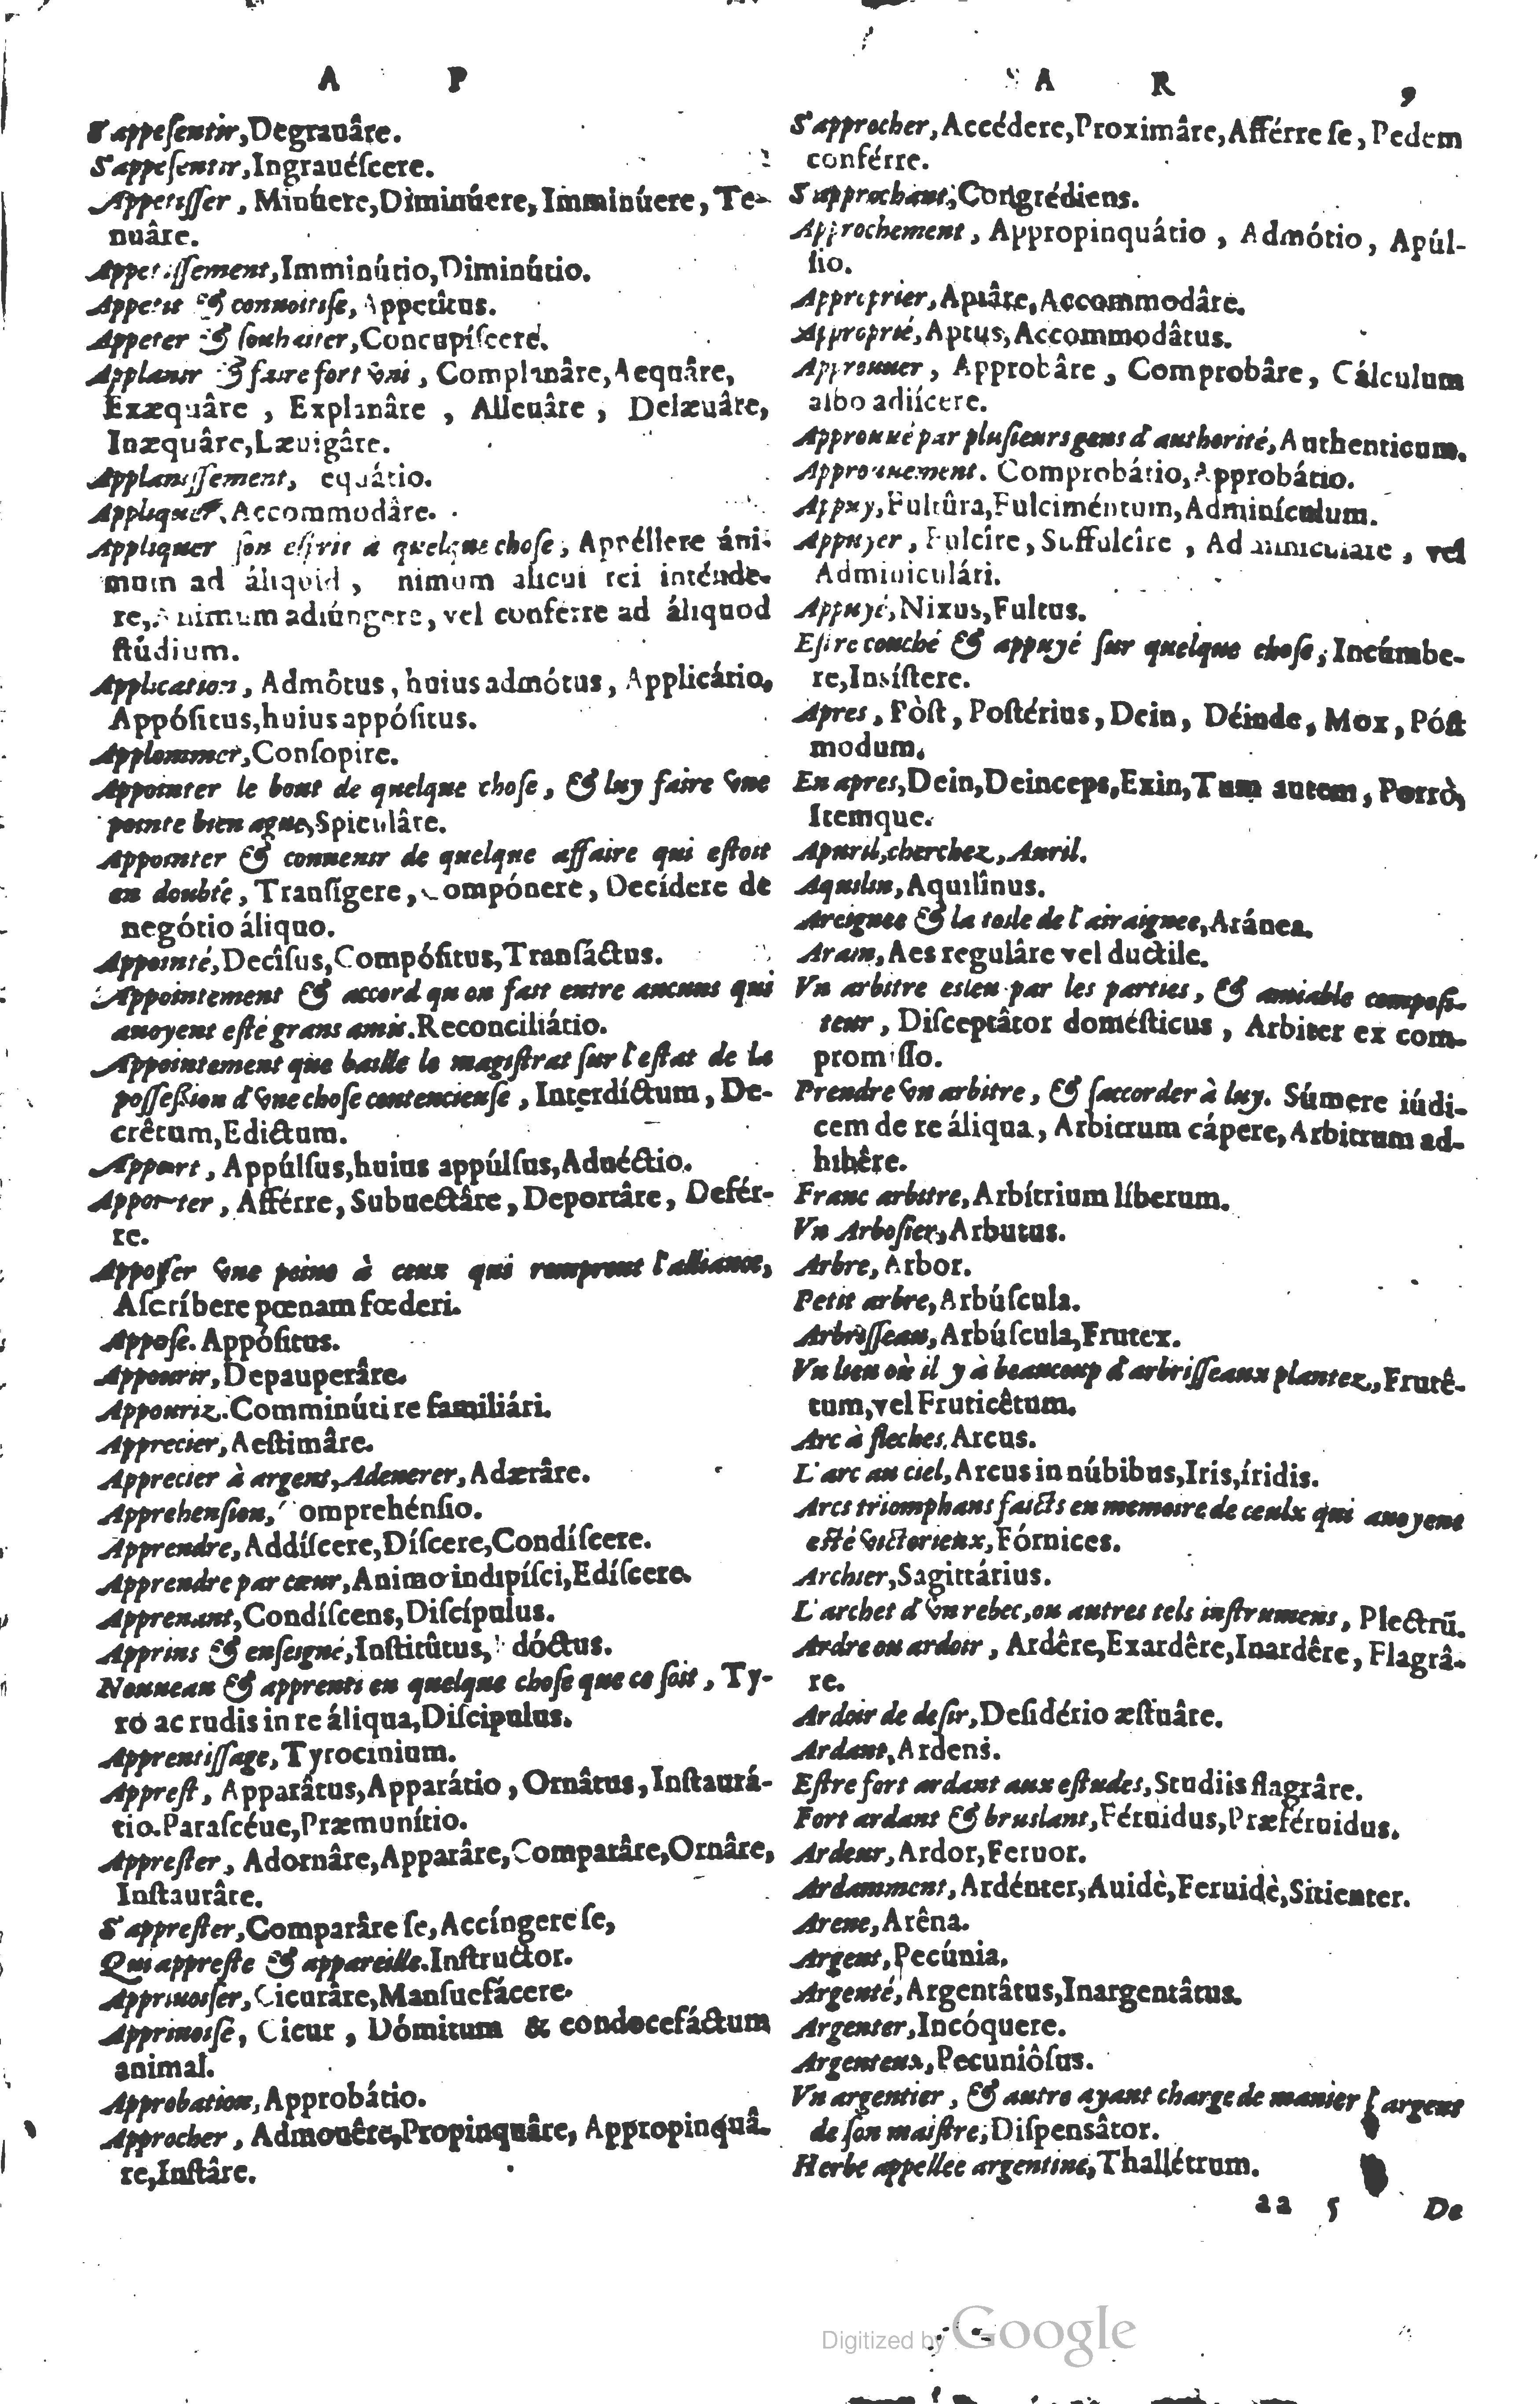 A P
S'appeſentir, Degrauâre.
S'appeſentir, Ingrauéſcere.
Appetiſſer, Minúere, Diminúere, Imminúere, Te-
nuâre.
Appetiſſement, Imminútio, Diminútio.
Appetit & connoitiſe, Appetîtus.
Appeter & ſouhaiter, Concupíſcere.
Applanir & faire fort vni, Complanâre, Aequâre,
Exæquâre, Explanâre, Alleuâre, Delæuâre,
Inæquâre, Læuigâre.
Applaniſſement, equátio.
Appliquer, Accommodâre.
Appliquer ſon eſprit a quelque choſe, Appéllere áni-
mum ad áliquid, nimum alicui rei inténde-
re, Animum adiúngere, vel conferre ad áliquod
ſtúdium.
Application, Admôtus, huius admótus, Applicátio,
Appóſitus, huius appóſitus.
Applommer, Conſopire.
Appointer le bout de quelque choſe, & luy faire vne
pointe bien ague, Spiculâre.
Appointer & conuenir de quelque affaire qui eſtoit
en doubte, Tranſígere, Compónere, Decídere de
negótio áliquo.
Appointé, Decîſus, Compóſitus, Tranſáctus.
Appointement & accord qu on fait entre aucuns qui
auoyent eſté grans amis. Reconciliátio.
Appointement que baille le magiſtrat ſur l'eſtat de la
poſſeſsion d'vne choſe contencieuſe, Interdíctum, De-
crêtum, Edictum.
Apport, Appúlſus, huius appúlſus, Aduéctio.
Apporter, Afférre, Subuectâre, Deportâre, Defér-
re.
Appoſer vne peine à ceux qui rompront l'alliance,
Aſcríbere pœnam fœderi.
Appoſe. Appóſitus.
Appourir, Depauperâre.
Appouriz. Comminúti re familiári.
Apprecier, Aeſtimâre.
Apprecier à argent, Adenerer, Adærâre.
Apprehenſion, omprehénſio.
Apprendre, Addíſcere, Díſcere, Condíſcere.
Apprendre par cœur, Animo indipíſci, Edíſcere.
Apprenant, Condíſcens, Diſcípulus.
Apprins & enſeigné, Inſtitûtus, dóctus.
Nouueau & apprenti en quelque choſe que ce ſoit, Ty-
ro ac rudis in re áliqua, Diſcipulus.
Apprentiſſage, Tyrocinium.
Appreſt, Apparâtus, Apparátio, Ornâtus, Inſtaurá-
tio. Paraſcéue, Præmunítio.
Appreſter, Adornâre, Apparâre, Comparâre, Ornâre,
Inſtaurâre.
S'appreſter, Comparâre ſe, Accíngere ſe,
Qui appreſte & appareille. Inſtructor.
Appriuoiſer, Cicurâre, Manſuefácere.
Appriuoiſé, Cicur, Dómitum & condocefáctum
animal.
Approbation, Approbátio.
Approcher, Admouêre, Propinquâre, Appropinquâ-
re, Inſtâre.
A R 9
S'approcher, Accédere, Proximâre, Afférre ſe, Pedem
conférre.
S'approchant, Congrédiens.
Approchement, Appropinquátio, Admótio, Apúl-
ſio.
Approprier, Aptâre, Accommodâre.
Approprié, Aptus, Accommodâtus.
Approuuer, Approbâre, Comprobâre, Cálculum
albo adiícere.
Approuué par pluſieurs gens d'authorité, Authenticum.
Approuuement. Comprobátio, Approbátio.
Appuy, Fultûra, Fulciméntum, Adminículum.
Appuyer, Fulcîre, Suffulcîre, Adminiculare, vel
Adminiculári.
Appuyé, Nixus, Fultus.
Eſtre couché & appuyé ſur quelque choſe, Incúmbe-
re, Inſiſtere.
Apres, Pòſt, Poſtérius, Dein, Déinde, Mox, Póſt
modum.
En apres, Dein, Deinceps, Exin, Tum autem, Porrò,
Itemque.
Apuril, cherchez, Auril.
Aquilin, Aquilînus.
Areignee & la toile de l'airaignee, Aránea.
Arain, Aes regulâre vel ductile.
Vn arbitre esleu par les parties, & amiable compoſi-
teur, Diſceptâtor doméſticus, Arbiter ex com-
promiſſo.
Prendre vn arbitre, & ſaccorder à luy. Súmere iúdi-
cem de re áliqua, Arbitrum cápere, Arbitrum ad-
hibêre.
Franc arbitre, Arbítrium líberum.
Vn Arboſier, Arbutus.
Arbre, Arbor.
Petit arbre, Arbúſcula.
Arbriſſeau, Arbúſcula, Frutex.
Vn lieu où il y à beaucoup d'arbriſſeaux plantez, Frutê-
tum, vel Fruticêtum.
Arc à fleches, Arcus.
L'arc au ciel, Arcus in núbibus, Iris, íridis.
Arcs triomphans faicts en memoire de ceulx qui auoyent
eſté victorieux, Fórnices.
Archier, Sagittárius.
L'archet d'vn rebec, ou autres tels inſtrumens, Plectrū.
Ardre ou ardoir, Ardêre, Exardêre, Inardêre, Flagrâ-
re.
Ardoir de deſir, Deſidério æſtuâre.
Ardant, Ardens.
Eſtre fort ardant aux eſtudes, Studiis flagrâre.
Fort ardant & bruslant, Féruidus, Præféruidus.
Ardeur, Ardor, Feruor.
Ardamment, Ardénter, Auidè, Feruidè, Sitienter.
Arene, Arêna.
Argent, Pecúnia.
Argenté, Argentâtus, Inargentâtus.
Argenter, Incóquere.
Argenteux, Pecuniôſus.
Vn argentier, & autre ayant charge de manier l'argent
de ſon maiſtre, Diſpensâtor.
Herbe appellee argentine, Thallétrum.
aa 5 De
Digitized by Google